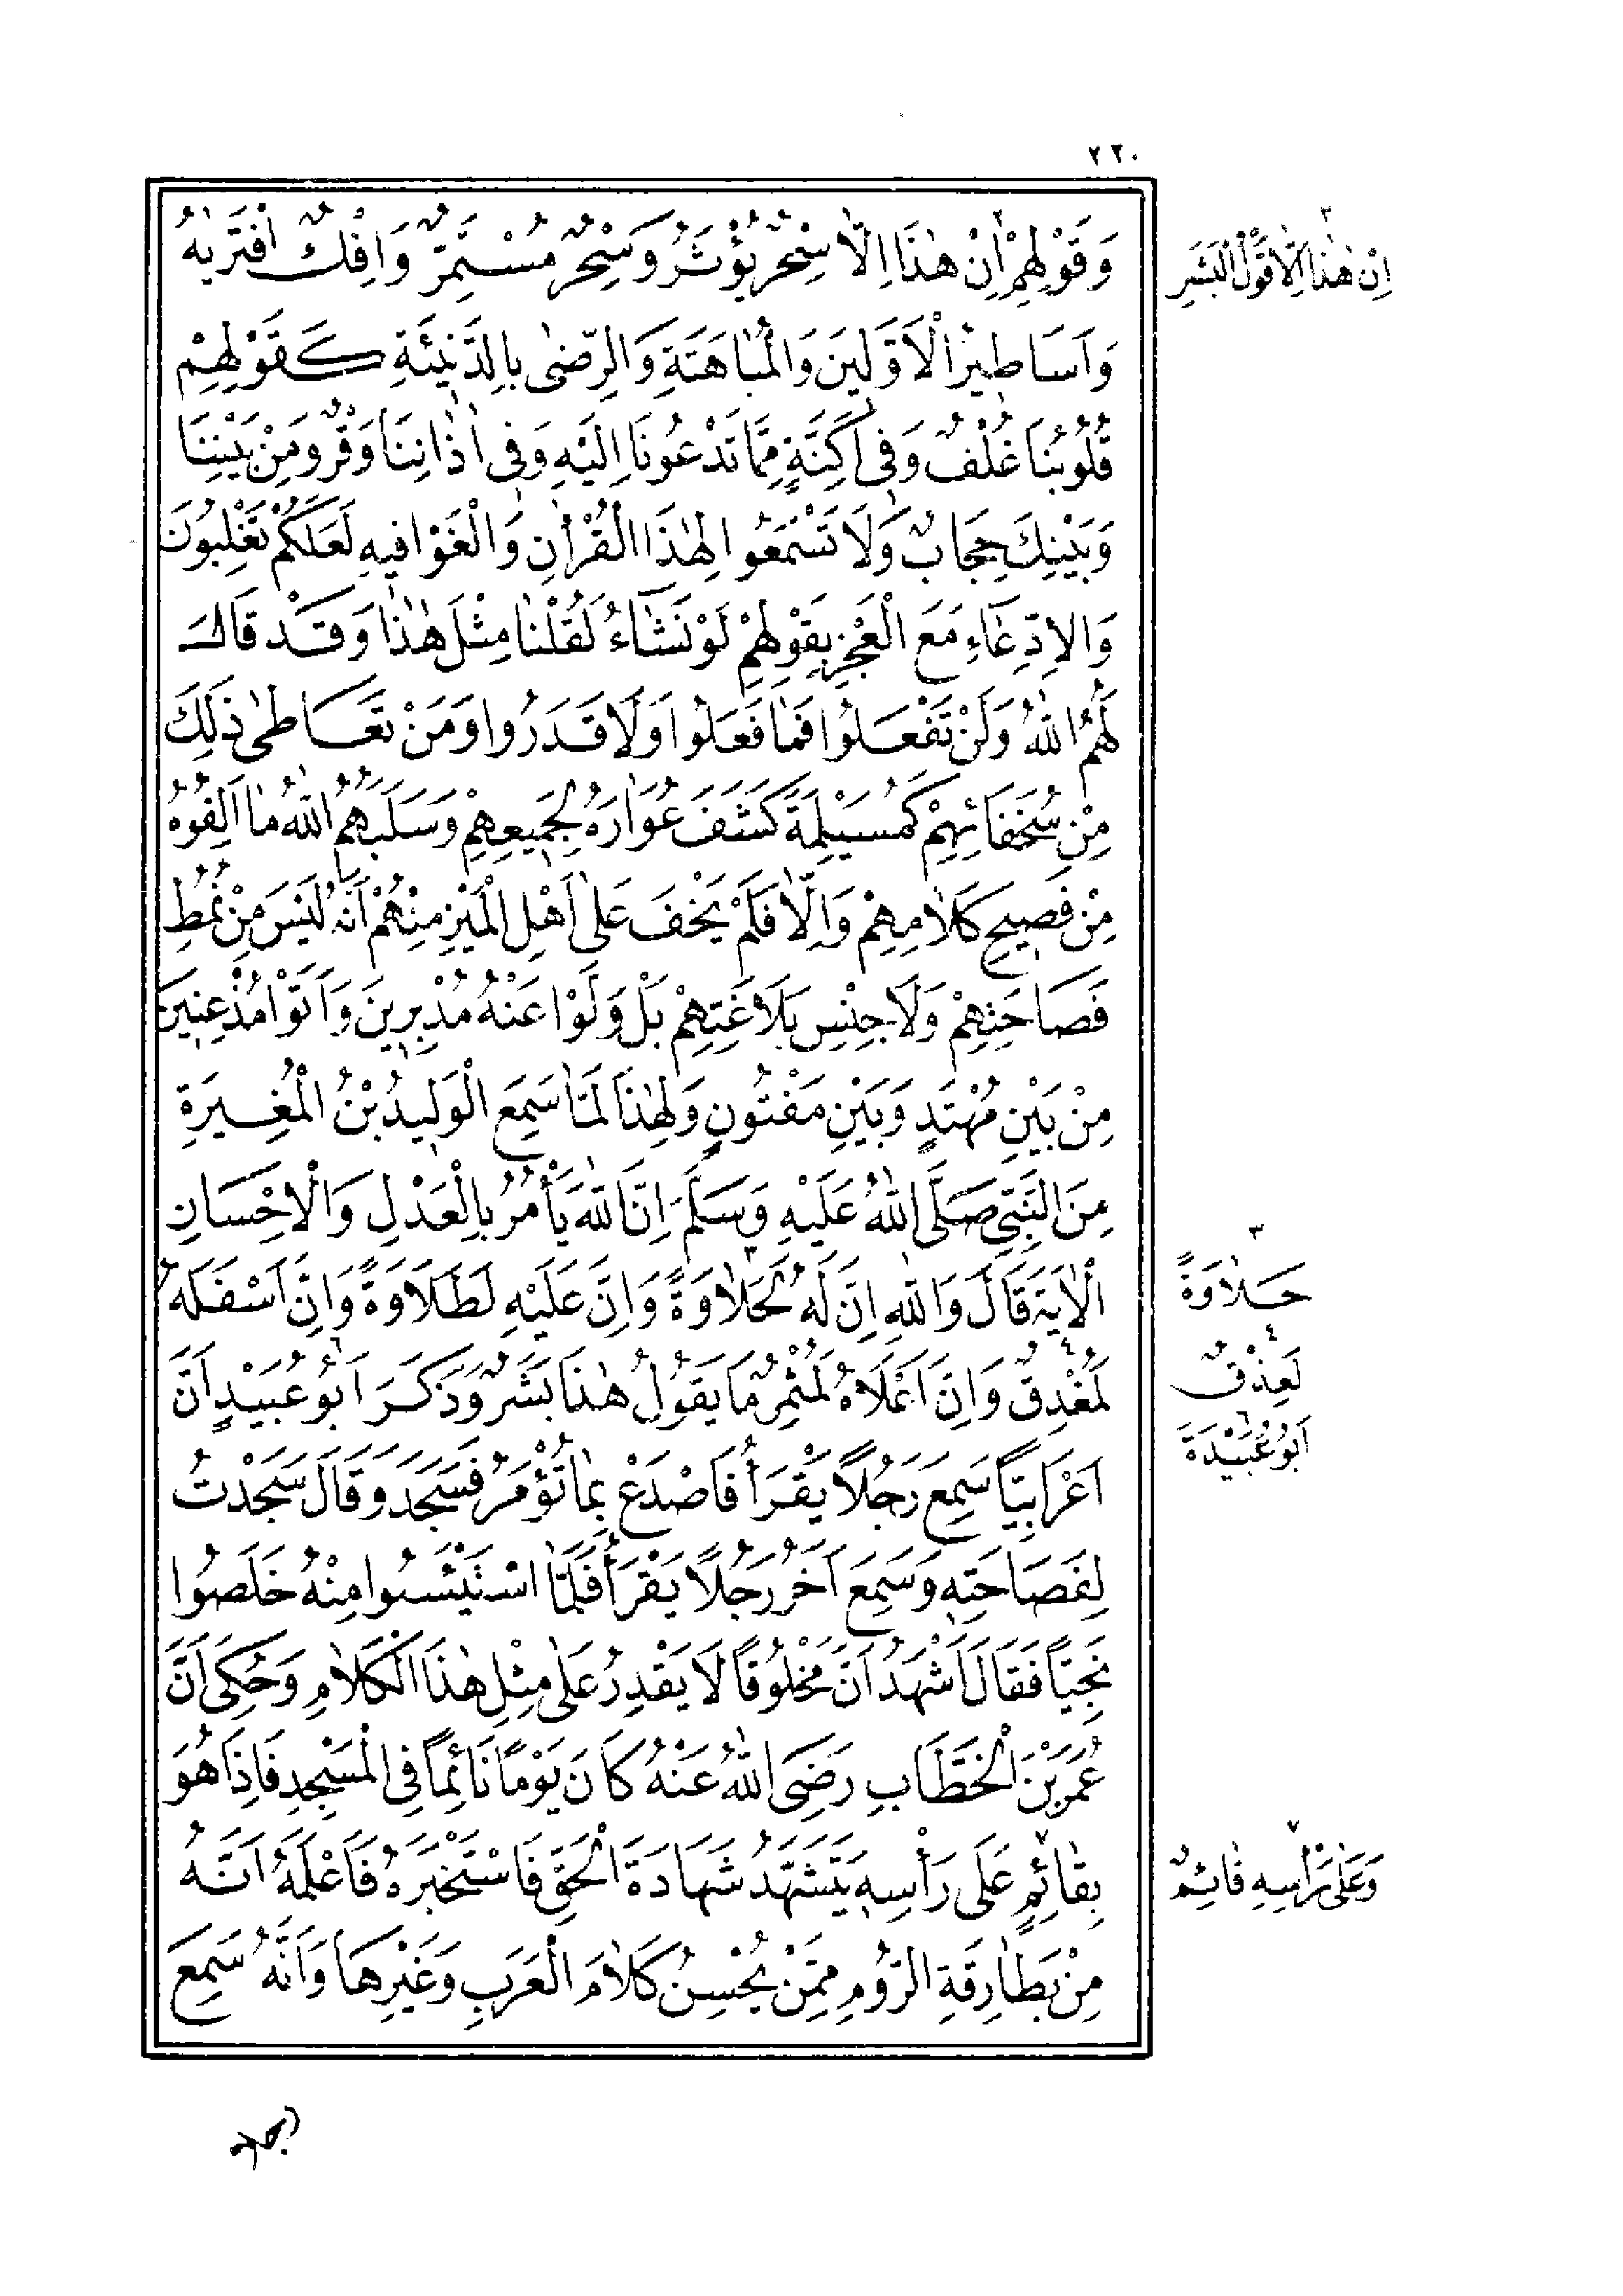 ٢٢٠
وَقَوْلِهِمْ اِنْ هٰذَا اِلَّا سِحْرٌ يُؤْثَرُ وَسِحْرٌ مُسْتَمِرٌّ وَاِفْكٌ افْتَرٰيهُ
وَاَسَاطِيرُ الْاَوَّلِينَ وَالْمُبَاهَتَةِ وَالرِّضٰى بِالدَّنِيْئَةِ كَقَوْلِهِمْ
قُلُوبُنَا غُلْفٌ وَفِى اَكِنَّةٍ مِمَّا تَدْعُونَا اِلَيْهِ وَفِى اٰذَانِنَا وَقْرٌ وَمِنْ بَيْنِنَا
وَبَيْنِكَ حِجَابٌ وَلَا تَسْمَعُوا لِهٰذَا الْقُرْاٰنِ وَالْغَوْا فِيهِ لَعَلَّكُمْ تَغْلِبُونَ
وَالْاِدِّعَاءِ مَعَ الْعَجْزِ بِقَوْلِهِمْ لَوْ نَشَاءُ لَقُلْنَا مِثْلَ هٰذَا وَقَدْ قَالَ
لَهُمُ اللّٰهُ وَلَنْ تَفْعَلُوا فَمَا فَعَلُوا وَلَا قَدَرُوا وَمَنْ تَعَاطٰى ذٰلِكَ
مِنْ سُخَفَائِهِمْ كَمُسَيْلِمَةَ كَشَفَ عُوَارَهُ لِجَمِيعِهِمْ وَسَلَبَهُمُ اللّٰهُ مَا اَلِفُوهُ
مِنْ فَصِيحِ كَلَامِهِمْ وَاِلَّا فَلَمْ يَخْفَ عَلٰى اَهْلِ الْمَيْزِ مِنْهُمْ اَنَّهُ لَيْسَ مِنْ نَمَطِ
فَصَاحَتِهِمْ وَلَا جِنْسِ بَلَاغَتِهِمْ بَلْ وَلَّوْا عَنْهُ مُدْبِرِينَ وَاَتَوْا مُذْعِنِينَ
مِنْ بَيْنِ مُهْتَدٍ وَبَيْنِ مَفْتُونٍ وَلِهٰذَا لَمَّا سَمِعَ الْوَلِيدُ بْنُ الْمُغِيرَةِ
مِنَ النَّبِىِّ صَلَّى اللّٰهُ عَلَيْهِ وَسَلَّمَ اِنَّ اللّٰهَ يَأْمُرُ بِالْعَدْلِ وَالْاِحْسَانِ
الْاٰيَةَ قَالَ وَاللّٰهِ اِنَّ لَهُ لَحَلَاوَةً وَاِنَّ عَلَيْهِ لَطَلَاوَةً وَاِنَّ اَسْفَلَهُ
لَمُغْدِقٌ وَاِنَّ اَعْلَاهُ لَمُثْمِرٌ مَا يَقُولُ هٰذَا بَشَرٌ وَذَكَرَ اَبُو عُبَيْدٍ اَنَّ
اَعْرَابِيّاً سَمِعَ رَجُلاً يَقْرَأُ فَاصْدَعْ بِمَا تُؤْمَرُ فَسَجَدَ وَقَالَ سَجَدْتُ
لِفَصَاحَتِهِ وَسَمِعَ اٰخَرُ رَجُلاً يَقْرَأُ فَلَمَّا اسْتَيْئَسُوا مِنْهُ خَلَصُوا
نَجِيّاً فَقَالَ اَشْهَدُ اَنَّ مَخْلُوقاً لَا يَقْدِرُ عَلٰى مِثْلِ هٰذَا الْكَلَامِ وَحُكِىَ اَنَّ
عُمَرَ بْنَ الْخَطَّابِ رَضِىَ اللّٰهُ عَنْهُ كَانَ يَوْمًا نَائِماً فِى الْمَسْجِدِ فَاِذَا هُوَ
بِقَائِمٍ عَلَى رَأْسِهِ يَتَشَهَّدُ شَهَادَةَ الْحَقِّ فَاسْتَخْبَرَهُ فَاَعْلَمَهُ اَنَّهُ
مِنْ بَطَارِقَةِ الرُّومِ مِمَّنْ يُحْسِنُ كَلَامَ الْعَرَبِ وَغَيْرِهَا وَاَنَّهُ سَمِعَ
٣
اِنْ هٰذَا اِلَّا قَوْلُ الْبَشَرِ
٣
حَلَاوَةً
٤
لَعِذْقٌ
٦
اَبُو عُبَيْدَةَ
٧
وَعَلٰى رَأْسِهِ قَائِمٌ